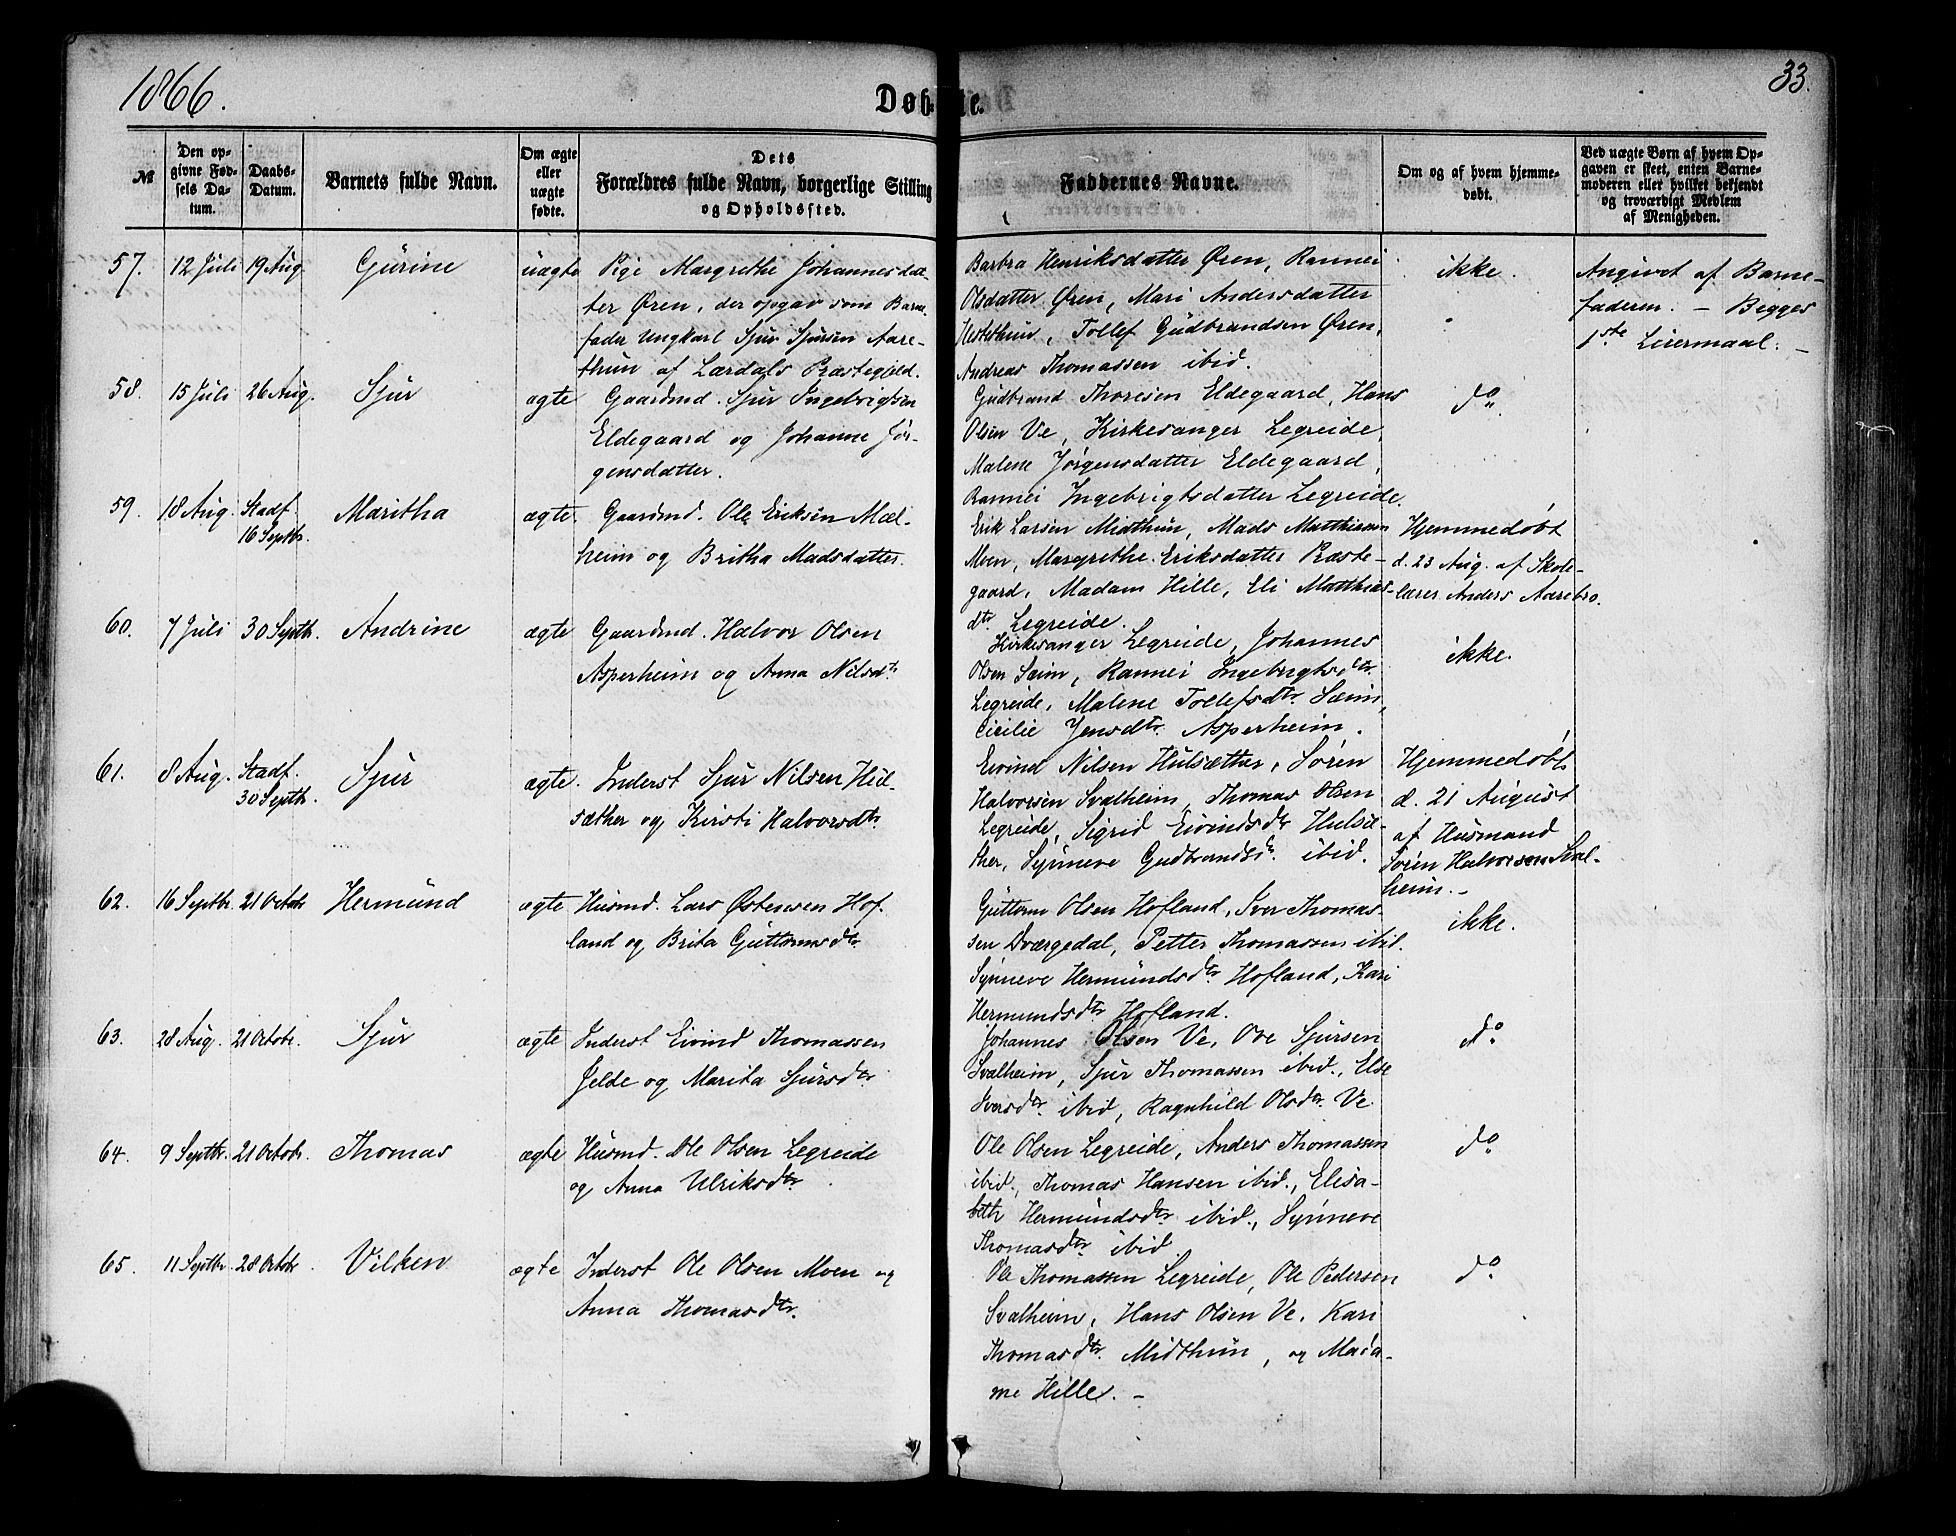 1866.
Døbte.
33.
№
Den opgivne Fødsels Datum.
Daabs-Datum.
Barnets fulde Navn.
Om ægte eller uægte fødte.
Dets Forældres fulde Navn, borgerlige Stilling og Opholdssted.
Faddernes Navne.
Om og af hvem hjemmedøbt.
Ved uægte Børn af hvem Opgaven er skeet, enten Barnemoderen eller hvilket bekjendt og troværdigt Medlem af Menigheden.
57. 12 Juli 19 Aug. Gürine uægte
Pige Margrethe Johannesdat-
ter Øren, der opgav som Barne-
fader Ungkarl Sjur Sjursen Aare-
thun af Lærdals Præstegjeld.
Barbra Henriksdatter Øren, Rannei
Olsdatter Øren, Mari Andersdatter
Hestethun, Tollef Gudbrandsen Øren,
Andreas Thomassen ibid.
ikke.
Angivet af Barne-
faderen. – Begges
1ste Leiermaal. –
58. 15 Juli 26 Aug. Sjur ægte
Gaardmd. Sjur Ingebrigtsen
Eldegaard og Johanne Jør-
gensdatter.
Gudbrand Thoresen Eldegaard, Hans
Olsen Ve, Kirkesanger Legreide,
Malene Jørgensdatter Eldegaard,
Rannei Ingebrigtsdatter Legreide.
do.
59. 18 Aug. Stadf. 16 Septbr. Maritha ægte.
Gaardmd. Ole Eriksen Mæl-
heim og Britha Madsdatter.
Erik Larsen Midthun, Mads Matthiasen
Moen, Margrethe Eriksdatter Præste-
gaard, Madam Hille, Eli Matthias-
dtr. Legreide.
Hjemmedøbt
d. 23 Aug. af Skole-
lærer Anders Aarebro.
60. 7 Juli 30 Septbr. Andrine ægte
Gaardmd. Halvor Olsen
Asperheim og Anna Nilsdtr.
Kirkesanger Legreide, Johannes
Olsen Sæim, Rannei Ingebrigtsdtr.
Legreide, Malene Tollefsdtr. Sæim,
Cicilie Jensdtr. Asperheim.
ikke.
61. 8 Aug. Stadf. 30 Septbr. Sjur ægte.
Inderst Sjur Nilsen Hül-
sæther og Kirsti Halvorsdtr.
Eivind Nilsen Hulsæther, Søren
Halvorsen Svalheim, Thomas Olsen
Legreide, Sigrid Eivindsdtr Hulsæ-
ther, Synneve Gudbrandsdtr. ibid.
Hjemmedøbt
d. 21 August
af Husmand
Søren Halvorsen Sval-
heim. –
62. 16 Septbr. 21 Octobr Hermund ægte
Husmd. Lars Østensen Hof-
land og Brita Guttormsdtr.
Guttorm Olsen Hofland, Iver Thomas-
sen Dværgedal, Petter Thomassen ibid.
Synneve Hermundsdtr. Hofland, Kari
Hermundsdtr. Hofland.
ikke.
63. 28 Aug. 21 Octobr. Sjur ægte
Inderst Eivind Thomassen
Jelde og Marita Sjursdtr.
Johannes Olsen Ve, Ove Sjursen
Svalheim, Sjur Thomassen ibid., Else
Iversdtr. ibid, Ragnhild Olsdtr. Ve.
do.
64. 9 Septbr. 21 Octobr. Thomas ægte
Husmd. Ole Olsen Legreide
og Anna Ulriksdtr.
Ole Olsen Legreide, Anders Thomassen
ibid., Thomas Hansen ibid., Elisa-
beth Hermundsdtr. ibid., Synneve
Thomasdtr. ibid
do.
65. 11 Septbr. 28 Octobr. Vilken ægte
Inderst Ole Olsen Moen og
Anna Thomasdtr.
Ole Thomassen Legreide, Ole Pedersen
Svalheim, Hans Olsen Ve, Kari
Thomasdtr. Midthun, og Mada-
me Hille. –
do.